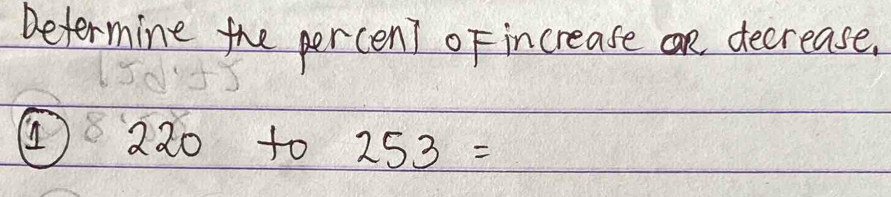 Determine the percent of increase or decrease.
① 220 to 253 =